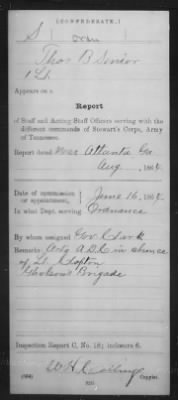 (CONFEDERATE.)
S
Thos B Sinior
1 Lt.
Appears on a
Report
of Staff and Acting Staff Officers serving with the
different commands of Stewart's Corps, Army
of Tennessee.
Report dated Near Atlanta Ga
Aug , 1864
Date of commission
or appointment, June 16, 1864
In what Dept. serving Ordnance
By whom assigned Gov. Clark
Remarks: Actg A.D.C in absence
of Lt. Clopton
Gholson's Brigade
Inspection Report C, No. 18; inclosure 6.
W H
Copyist.